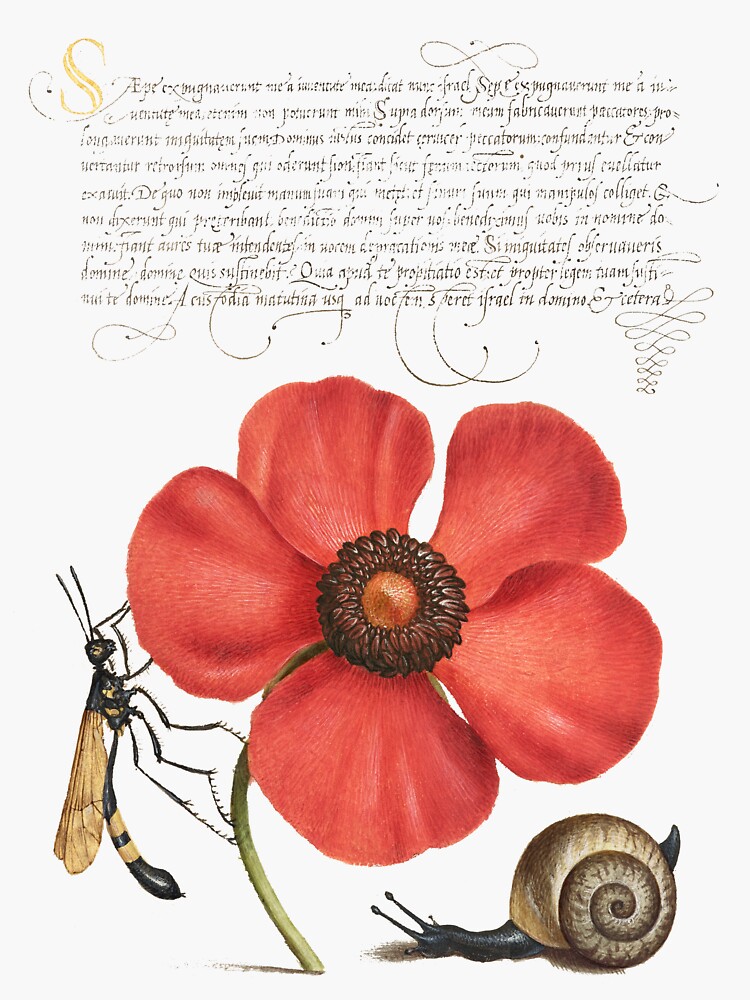 SÆpe expugnaverunt me a iuventute mea, dicat nunc israel, Sepe expugnaverunt me a iu-
ventute mea, etenim non potuerunt mihi. Supra dorsum meum fabricaverunt peccatores, pro-
longaverunt iniquitatem suem. Dominus iustus concidet cervices peccatorum: confundantur & con-
vertantur retrorsum omnes qui oderunt sion, fiant sicut fenum tectorum, quod prius evellatur
exaruit. De quo non implevit manum suam qui metet, et sinum suum qui manipulos colliget. &
non dixerunt qui preteribant, benedictio domini super vos: benediximus vobis in nomine do-
mini. fiant aures tuæ intendentes, in vocem deprecationis meæ. Si iniquitates observaveris
domine, domine quis sustinebit. Quia apud te propitiatio est: et propter legem tuam susti-
nui te domine. A custodia matutina usq ad noctem, speret israel in domino. & cetera